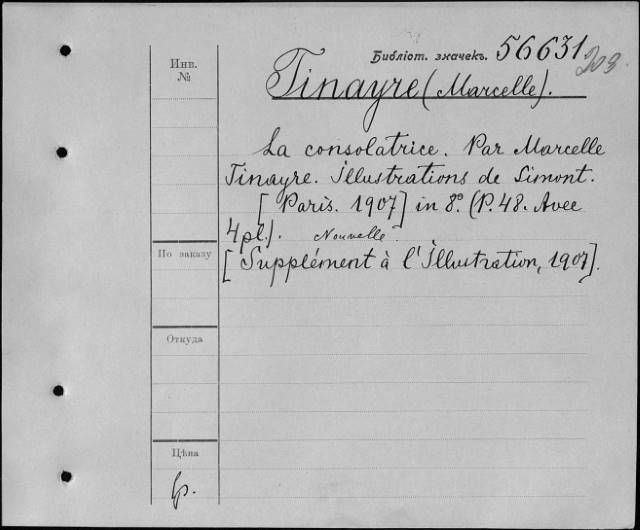 Библіот. значекъ. 56631
203
Инв.
№
Tinayre (Marcelle).
La consolatrice. Par Marcelle
Tinayre. Illustrations de Simont.
[Paris. 1907] in 8º. (P. 48. Avec
4 pl.). Nouvelle.
По заказу
[Supplément à l'Illustration, 1907].
Откуда
Цѣна